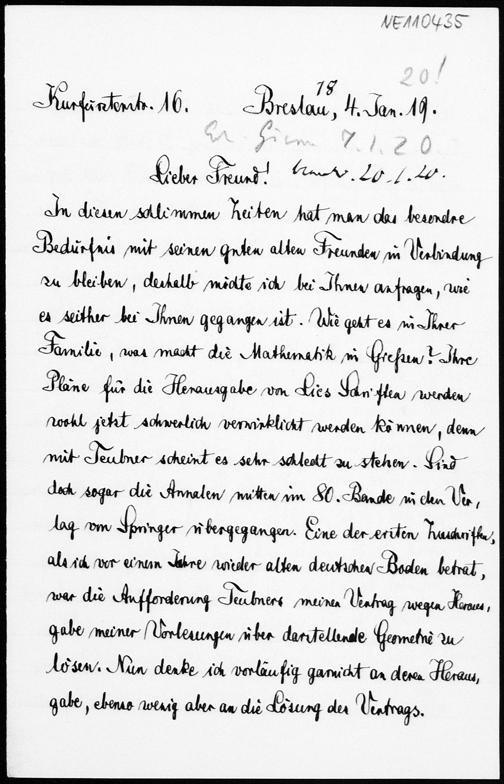 NE110435
20!
Kurfürstenstr. 16.
Breslau, 18
4. Jan. 19.
7.1.20
Lieber Freund!
20.1.20.
In diesen schlimmen Zeiten hat man das besondre
Bedürfnis mit seinen guten alten Freunden in Verbindung
zu bleiben, deshalb möchte ich bei Ihnen anfragen, wie
es seither bei Ihnen gegangen ist. Wie geht es in Ihrer
Familie, was macht die Mathematik in Gießen? Ihre
Pläne für die Herausgabe von Lies Schriften werden
wohl jetzt schwerlich verwirklicht werden können, denn
mit Teubner scheint es sehr schlecht zu stehen. Sind
doch sogar die Annalen mitten im 80. Bande in den Ver,
lag von Springer übergegangen. Eine der ersten Zuschriften,
als ich vor einem Jahre wieder alten deutschen Boden betrat,
war die Aufforderung Teubners meinen Vertrag wegen Heraus,
gabe meiner Vorlesungen über darstellende Geometrie zu
lösen. Nun denke ich vorläufig garnicht an deren Heraus,
gabe, ebenso wenig aber an die Lösung des Vertrags.